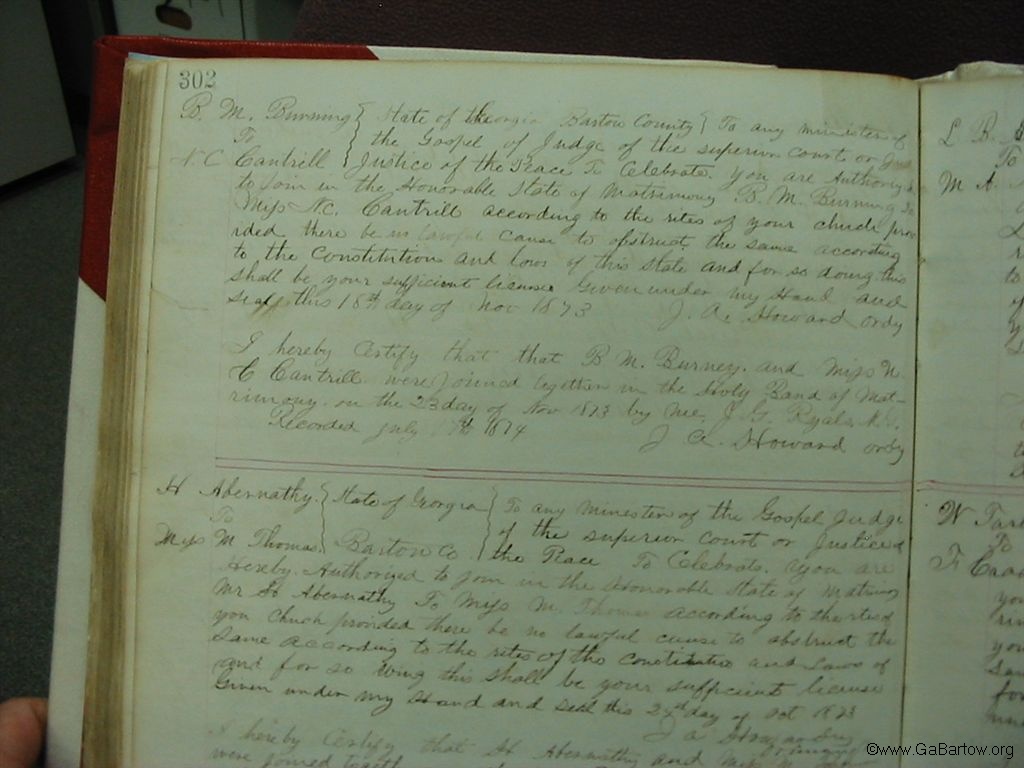 302
B. M. Burning } State of Georgia Bartow County } To any minister of
To the Gospel of Judge of the superior court or
N. C Cantrill } Justice of the Peace To Celebrate. you are Authoriz
to Join in the Honorable State of Matrimony B. M. Burning To
Miss N.C. Cantrill according to the rites of your church prov
ided there be no lawful cause to obstruct the same according
to the Constitution and laws of this State and for so doing this
shall be your sufficient license Given under my Hand and
seal this 18th day of Nov 1873 J. A. Howard ordy
I hereby Certify that that B M. Burney. and Miss N.
C Cantrill were Joined together in the Holy Band of Mat-
rimony. on the 23 day of Nov 1873 by me. J. G. Ryals. M.G.
Recorded July 1874 J A. Howard ordy
H Abernathy. } State of Georgia } To any Minister of the Gospel Judge
To of the superior court or Justice of
Miss M Thomas. } Bartow Co. } the Peace To Celebrate. you are
Hereby. Authorized to join in the Honorable State of Matrimony
Mr H Abernathy To Miss M. Thomas according to the rites of
you Church provided there be no lawful cause to obstruct the
same according to the rites of the constitution and Laws of
and for so doing this shall be your sufficient license
Given under my Hand and seal this 24th day of Oct 1873
J A Howard Ordy
I hereby Certify that H Abernathy and Miss M
were Joined together
L B.
To
M A.
W Tar
To
F
©www.GaBartow.org